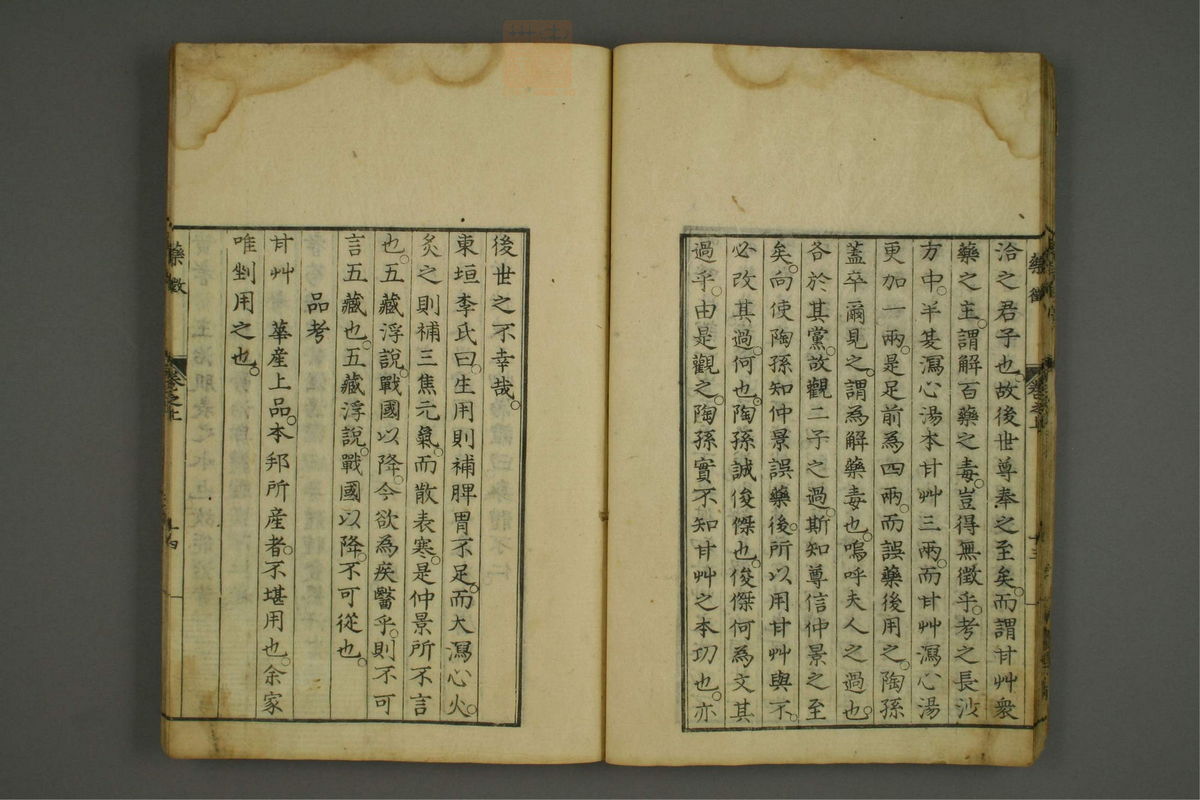 洽之君子也故後世尊奉之至矣。而謂甘艸衆
藥之主。謂解百藥之毒。豈得無徵乎。考之長沙
方中。半夏瀉心湯本甘艸三兩。而甘艸瀉心湯
更加一兩。是足前為四兩。而誤藥後用之。陶孫
蓋卒爾見之。謂為解藥毒也。嗚呼夫人之過也。
各於其黨。故觀二子之過。斯知尊信仲景之至
矣。向使陶孫知仲景誤藥後。所以用甘艸與不。
必改其過。何也。陶孫誠俊傑也。俊傑何為文其
過乎。由是觀之。陶孫實不知甘艸之本功也。亦
後世之不幸哉。
東垣李氏曰。生用則補脾胃不足。而大瀉心火。
炙之則補三焦元氣。而散表寒。是仲景所不言
也。五藏浮說。戰國以降。今欲為疾醫乎。則不可
言五藏也。五藏浮說。戰國以降。不可從也。
品考
甘艸 華產上品。本邦所產者。不堪用也。余家
唯剉用之也。
藥徵
卷之上